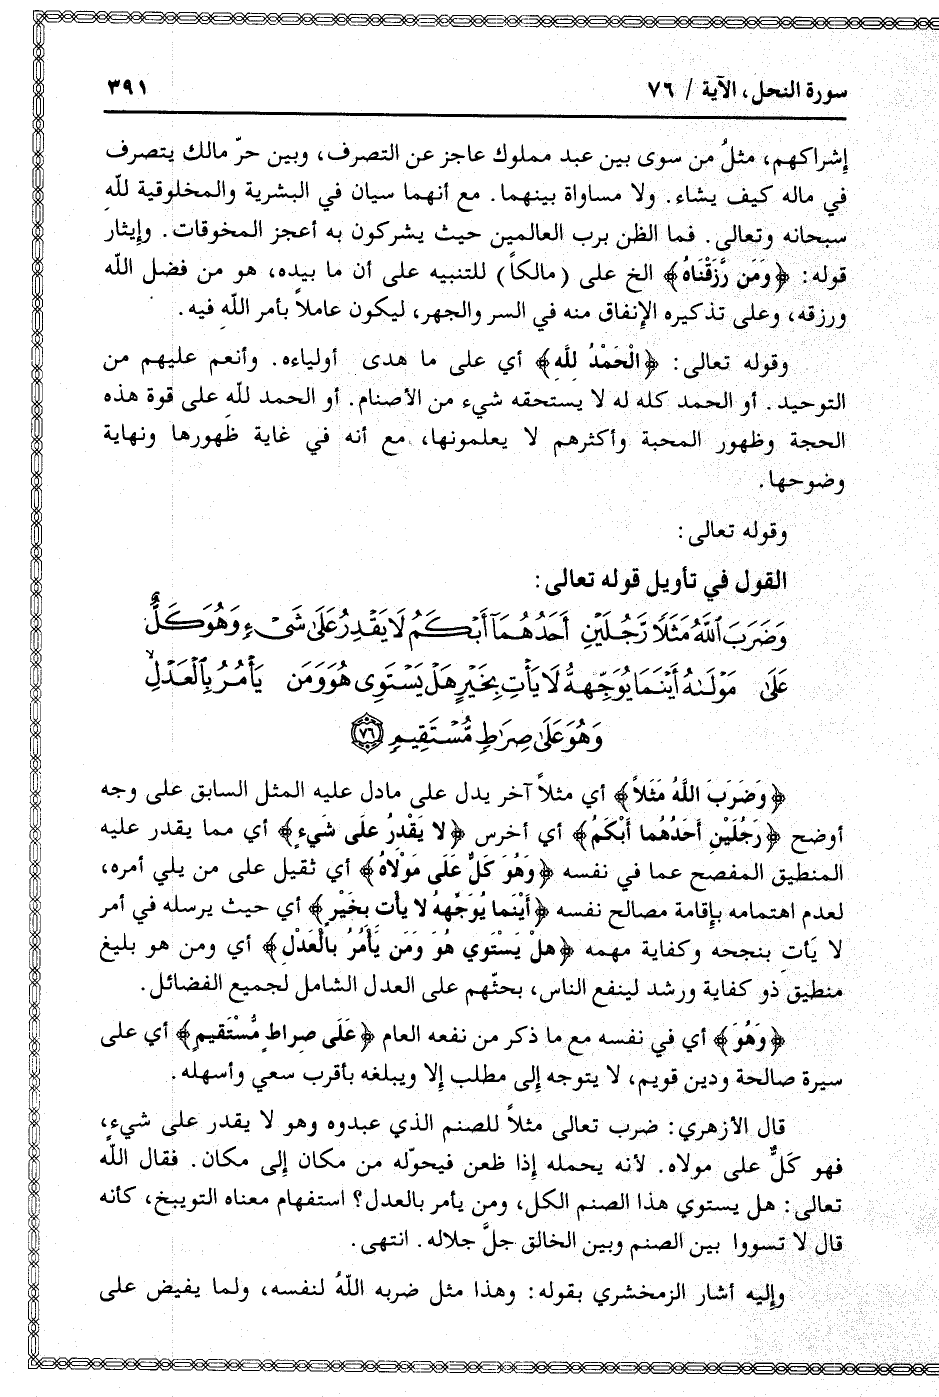 سورة النحل، الآية / ٧٦
٣٩١
إشراكهم، مثلُ من سوى بين عبد مملوك عاجز عن التصرف، وبين حرّ مالك يتصرف
في ماله كيف يشاء. ولا مساواة بينهما. مع أنهما سيان في البشرية والمخلوقية للّهِ
سبحانه وتعالى. فما الظن برب العالمين حيث يشركون به أعجز المخوقات. وإيثار
قوله: ﴿وَمَن رَّزَقْنَاهُ﴾ الخ على (مالكاً) للتنبيه على أن ما بيده، هو من فضل اللّه
ورزقه، وعلى تذكيره الإنفاق منه في السر والجهر، ليكون عاملاً بأمر اللّهِ فيه.
وقوله تعالى: ﴿الْحَمْدُ لِلَّهِ﴾ أي على ما هدى أولياءه. وأنعم عليهم من
التوحيد. أو الحمد كله له لا يستحقه شيء من الأصنام. أو الحمد للّهِ على قوة هذه
الحجة وظهور المحبة وأكثرهم لا يعلمونها، مع أنه في غاية ظهورها ونهاية
وضوحها.
وقوله تعالى:
القول في تأويل قوله تعالى:
وَضَرَبَ ٱللَّهُ مَثَلًا رَّجُلَيْنِ أَحَدُهُمَآ أَبْكَمُ لَا يَقْدِرُ عَلَىٰ شَىْءٍ وَهُوَ كَلٌّ
عَلَىٰ مَوْلَىٰهُ أَيْنَمَا يُوَجِّههُّ لَا يَأْتِ بِخَيْرٍ هَلْ يَسْتَوِى هُوَ وَمَن يَأْمُرُ بِٱلْعَدْلِ ۙ
وَهُوَ عَلَىٰ صِرَٰطٍ مُّسْتَقِيمٍ ﴿٧٦﴾
﴿وَضَرَبَ اللَّهُ مَثَلاً﴾ أي مثلاً آخر يدل على مادل عليه المثل السابق على وجه
أوضح ﴿رَجُلَيْنِ أَحَدُهُما أَبْكَمُ﴾ أي أخرس ﴿لا يَقْدِرُ عَلَى شَيءٍ﴾ أي مما يقدر عليه
المنطيق المفصح عما في نفسه ﴿وَهُوَ كَلٌّ عَلَى مَوْلاهُ﴾ أي ثقيل على من يلي أمره،
لعدم اهتمامه بإقامة مصالح نفسه ﴿أَيْنَما يُوَجِّههُ لا يأت بِخَيْرٍ﴾ أي حيث يرسله في أمر
لا يَأتِ بنجحه وكفاية مهمه ﴿هلْ يَسْتَوي هُوَ وَمَن يَأْمُرُ بالْعَدْلِ﴾ أي ومن هو بليغ
منطيق ذو كفاية ورشد لينفع الناس، بحثّهم على العدل الشامل لجميع الفضائل.
﴿وَهُوَ﴾ أي في نفسه مع ما ذكر من نفعه العام ﴿عَلَى صِراطٍ مُّسْتَقيمٍ﴾ أي على
سيرة صالحة ودين قويم، لا يتوجه إلى مطلب إلا ويبلغه بأقرب سعي وأسهله.
قال الأزهري: ضرب تعالى مثلاً للصنم الذي عبدوه وهو لا يقدر على شيءٍ،
فهو كَلٌّ على مولاه. لأنه يحمله إذا ظعن فيحوّله من مكان إلى مكان. فقال اللّه
تعالى: هل يستوي هذا الصنم الكل، ومن يأمر بالعدل؟ استفهام معناه التوبيخ، كأنه
قال لا تسووا بين الصنم وبين الخالق جلَّ جلاله. انتهى.
وإليه أشار الزمخشري بقوله: وهذا مثل ضربه اللّهُ لنفسه، ولما يفيض على